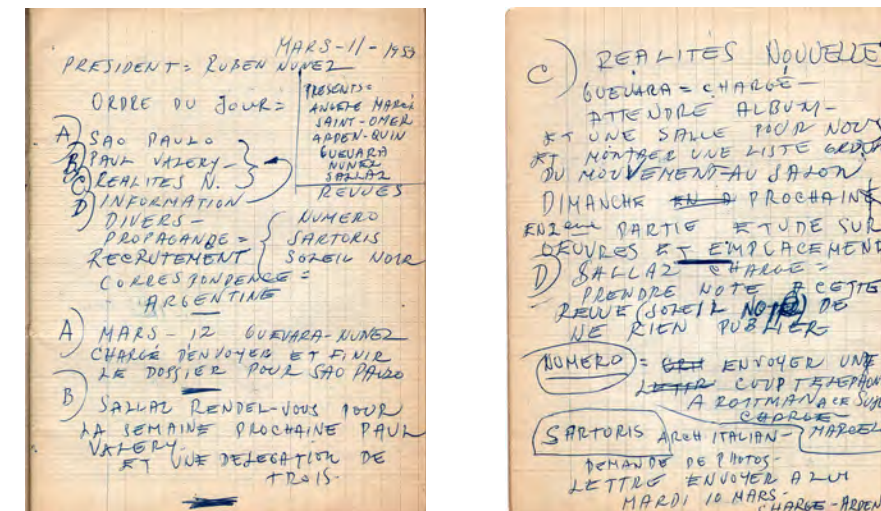 MARS-11-1953
PRESIDENT = RUBEN NUNEZ
ORDRE DU JOUR =
PRESENTS =
ANGELE MARCÉ
SAINT-OMER
ARDEN-QUIN
GUEVARA
NUNEZ
SALLAZ
A) SAO PAULO
B) PAUL VALERY -
C) REALITES N.
D) INFORMATION
DIVERS -
PROPAGANDE =
RECRUTEMENT
REVUES
NUMERO
SARTORIS
SOLEIL NOIR
CORRESPONDENCE =
ARGENTINE
A) MARS - 12 GUEVARA-NUNEZ
CHARGÉ D'ENVOYER ET FINIR
LE DOSSIER POUR SAO PAULO
B) SALLAZ RENDEZ-VOUS POUR
LA SEMAINE PROCHAINE PAUL
VALERY -
ET UNE DELEGATION DE
TROIS -
C) REALITÉS NOUVELLE
GUEVARA = CHARGÉ -
ATTENDRE ALBUM -
ET UNE SALLE POUR NOUS
ET MONTRER UNE LISTE
DU MOUVEMENT-AU SALON
DIMANCHE EN PROCHAINE
EN 2eme PARTIE ETUDE SUR
OEUVRES ET EMPLACEMENT
D) SALLAZ CHARGÉ =
PRENDRE NOTE A CETTE
REVUE (SOLEIL NOIR) DE
NE RIEN PUBLIER
NUMERO = ENVOYER UNE
LETTR COUP TELEPHON
A ROITMAN A CE SUJE
CHARGE -
MARCEL
SARTORIS ARCH ITALIAN -
DEMANDE DE PHOTOS -
LETTRE ENVOYER A LUI
MARDI 10 MARS -
CHARGE - ARDEN